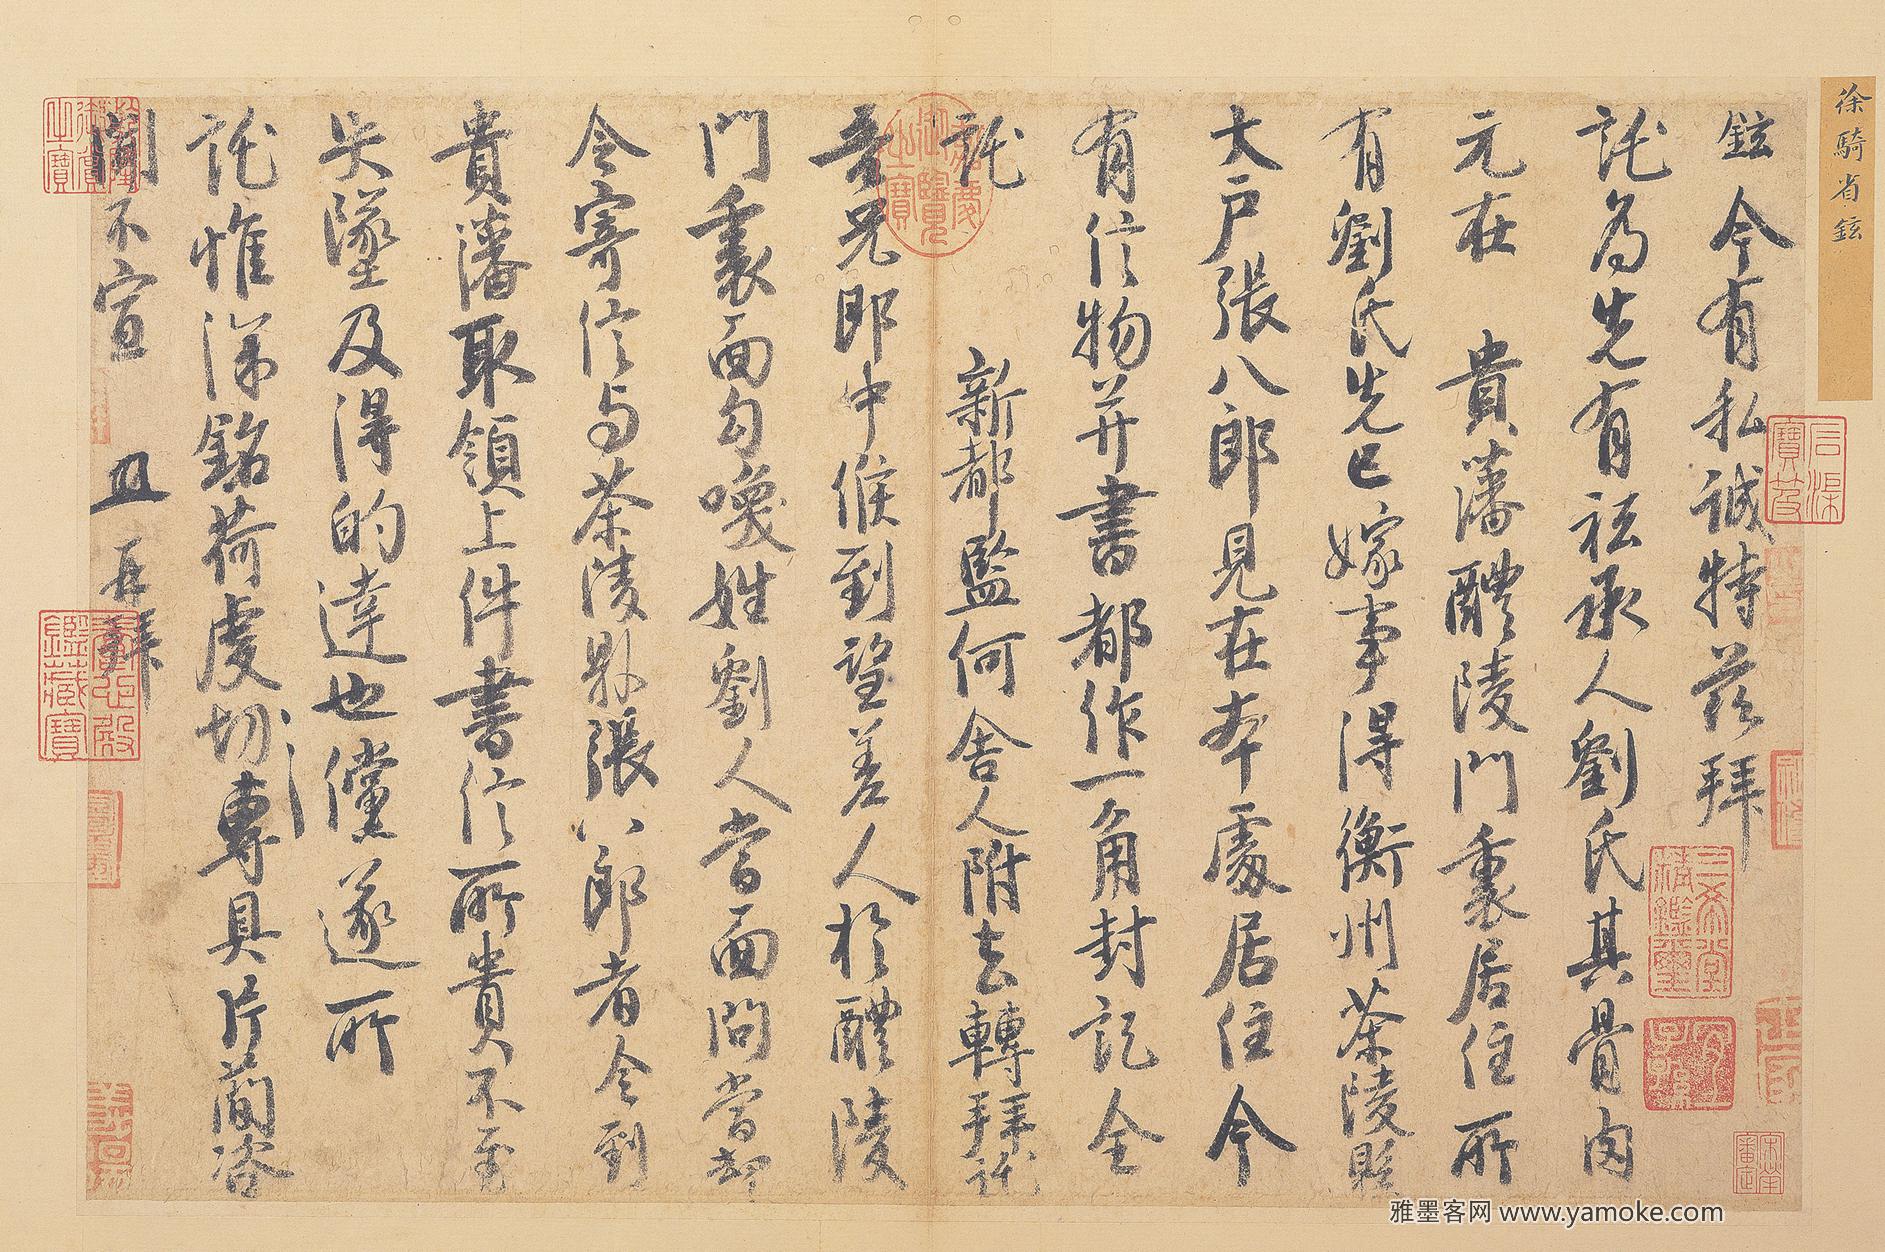 徐騎省鉉
鉉今有私誠特茲拜
託為先有祗承人劉氏其骨肉
元在 貴藩醴陵門裏居住所
有劉氏先已嫁事得衡州茶陵縣
大戶張八郎見在本處居住今
有信物并書都作一角封記全
託 新都監何舍人附去轉拜託
吾兄郎中候到望差人於醴陵
門裏面勾喚姓劉人當面問當却
令寄信与茶陵縣張八郎者令到
貴藩取領上件書信所貴不至
失墜及得的達也儻遂所
託惟深銘荷虔切專具片簡咨
聞不宣 且 再拜
嘉慶御覽之寶
石渠寶笈
三希堂精鑑璽
宜子孫
養心殿鑑藏寶
雅墨客网 www.yamoke.com